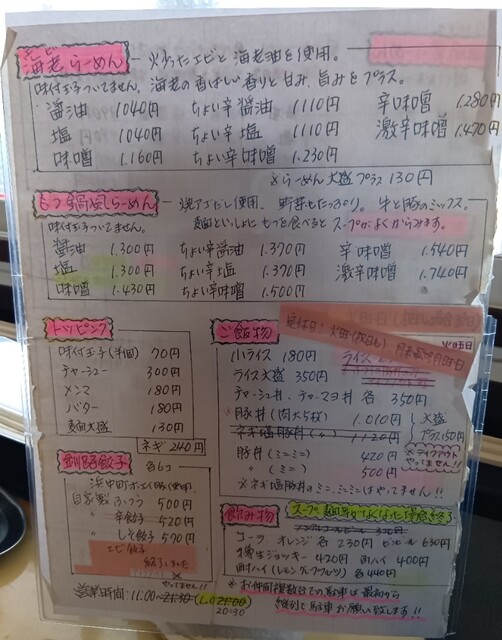 海老らーめん 火ぶったエビと海老油を使用。
味付玉子ついてません。海老の香ばしい香りと甘み、旨みをプラス。
醤油 1040円 ちょい辛醤油 1110円 辛味噌 1.280円
塩 1040円 ちょい辛塩 1110円 激辛味噌 1.470円
味噌 1.160円 ちょい辛味噌 1.230円
※らーめん大盛プラス130円
もつ鍋風らーめん 焼アゴだし使用、野菜もたっぷり。牛と豚のミックス。
味付玉子ついてません。 麺といっしょにもつを食べるとスープがよくからみます。
醤油 1.300円 ちょい辛醤油 1.370円 辛味噌 1.540円
塩 1.300円 ちょい辛塩 1.370円 激辛味噌 1.740円
味噌 1.430円 ちょい辛味噌 1.500円
トッピング
味付玉子(半個) 70円
チャーシュー 300円
メンマ 180円
バター 180円
麺大盛 130円
ネギ 240円
釧路餃子 各6コ
自家製 ふつう 500円
〃 辛餃子 520円
〃 しそ餃子 590円
エビ餃子
終了しました
営業時間:11:00~21:30(L.O21:00)
20:30
ご飯物
定休日:火曜(祝日も)
小ライス 180円
ライス大盛 350円
チャーシュー丼、チャーマヨ丼 各350円
豚丼(肉大5枚) 1.010円 大盛
ネギ塩豚丼(〃) 1120円 プラス150円
豚丼(ミニミニ) 420円 ※テイクアウト
〃 (ミニ) 500円 やってません!!
※ネギ塩豚丼のミニ、ミニミニはやってません!!
飲み物 スープ、麺等がなくなった場合終了
コーラ オレンジ 各230円
樽生ジョッキー 420円 酎ハイ 400円
酎ハイ(レモン、グレープフルーツ) 各440円
※お仲間複数台での駐車は最初から
縦列で駐車お願い致します!!